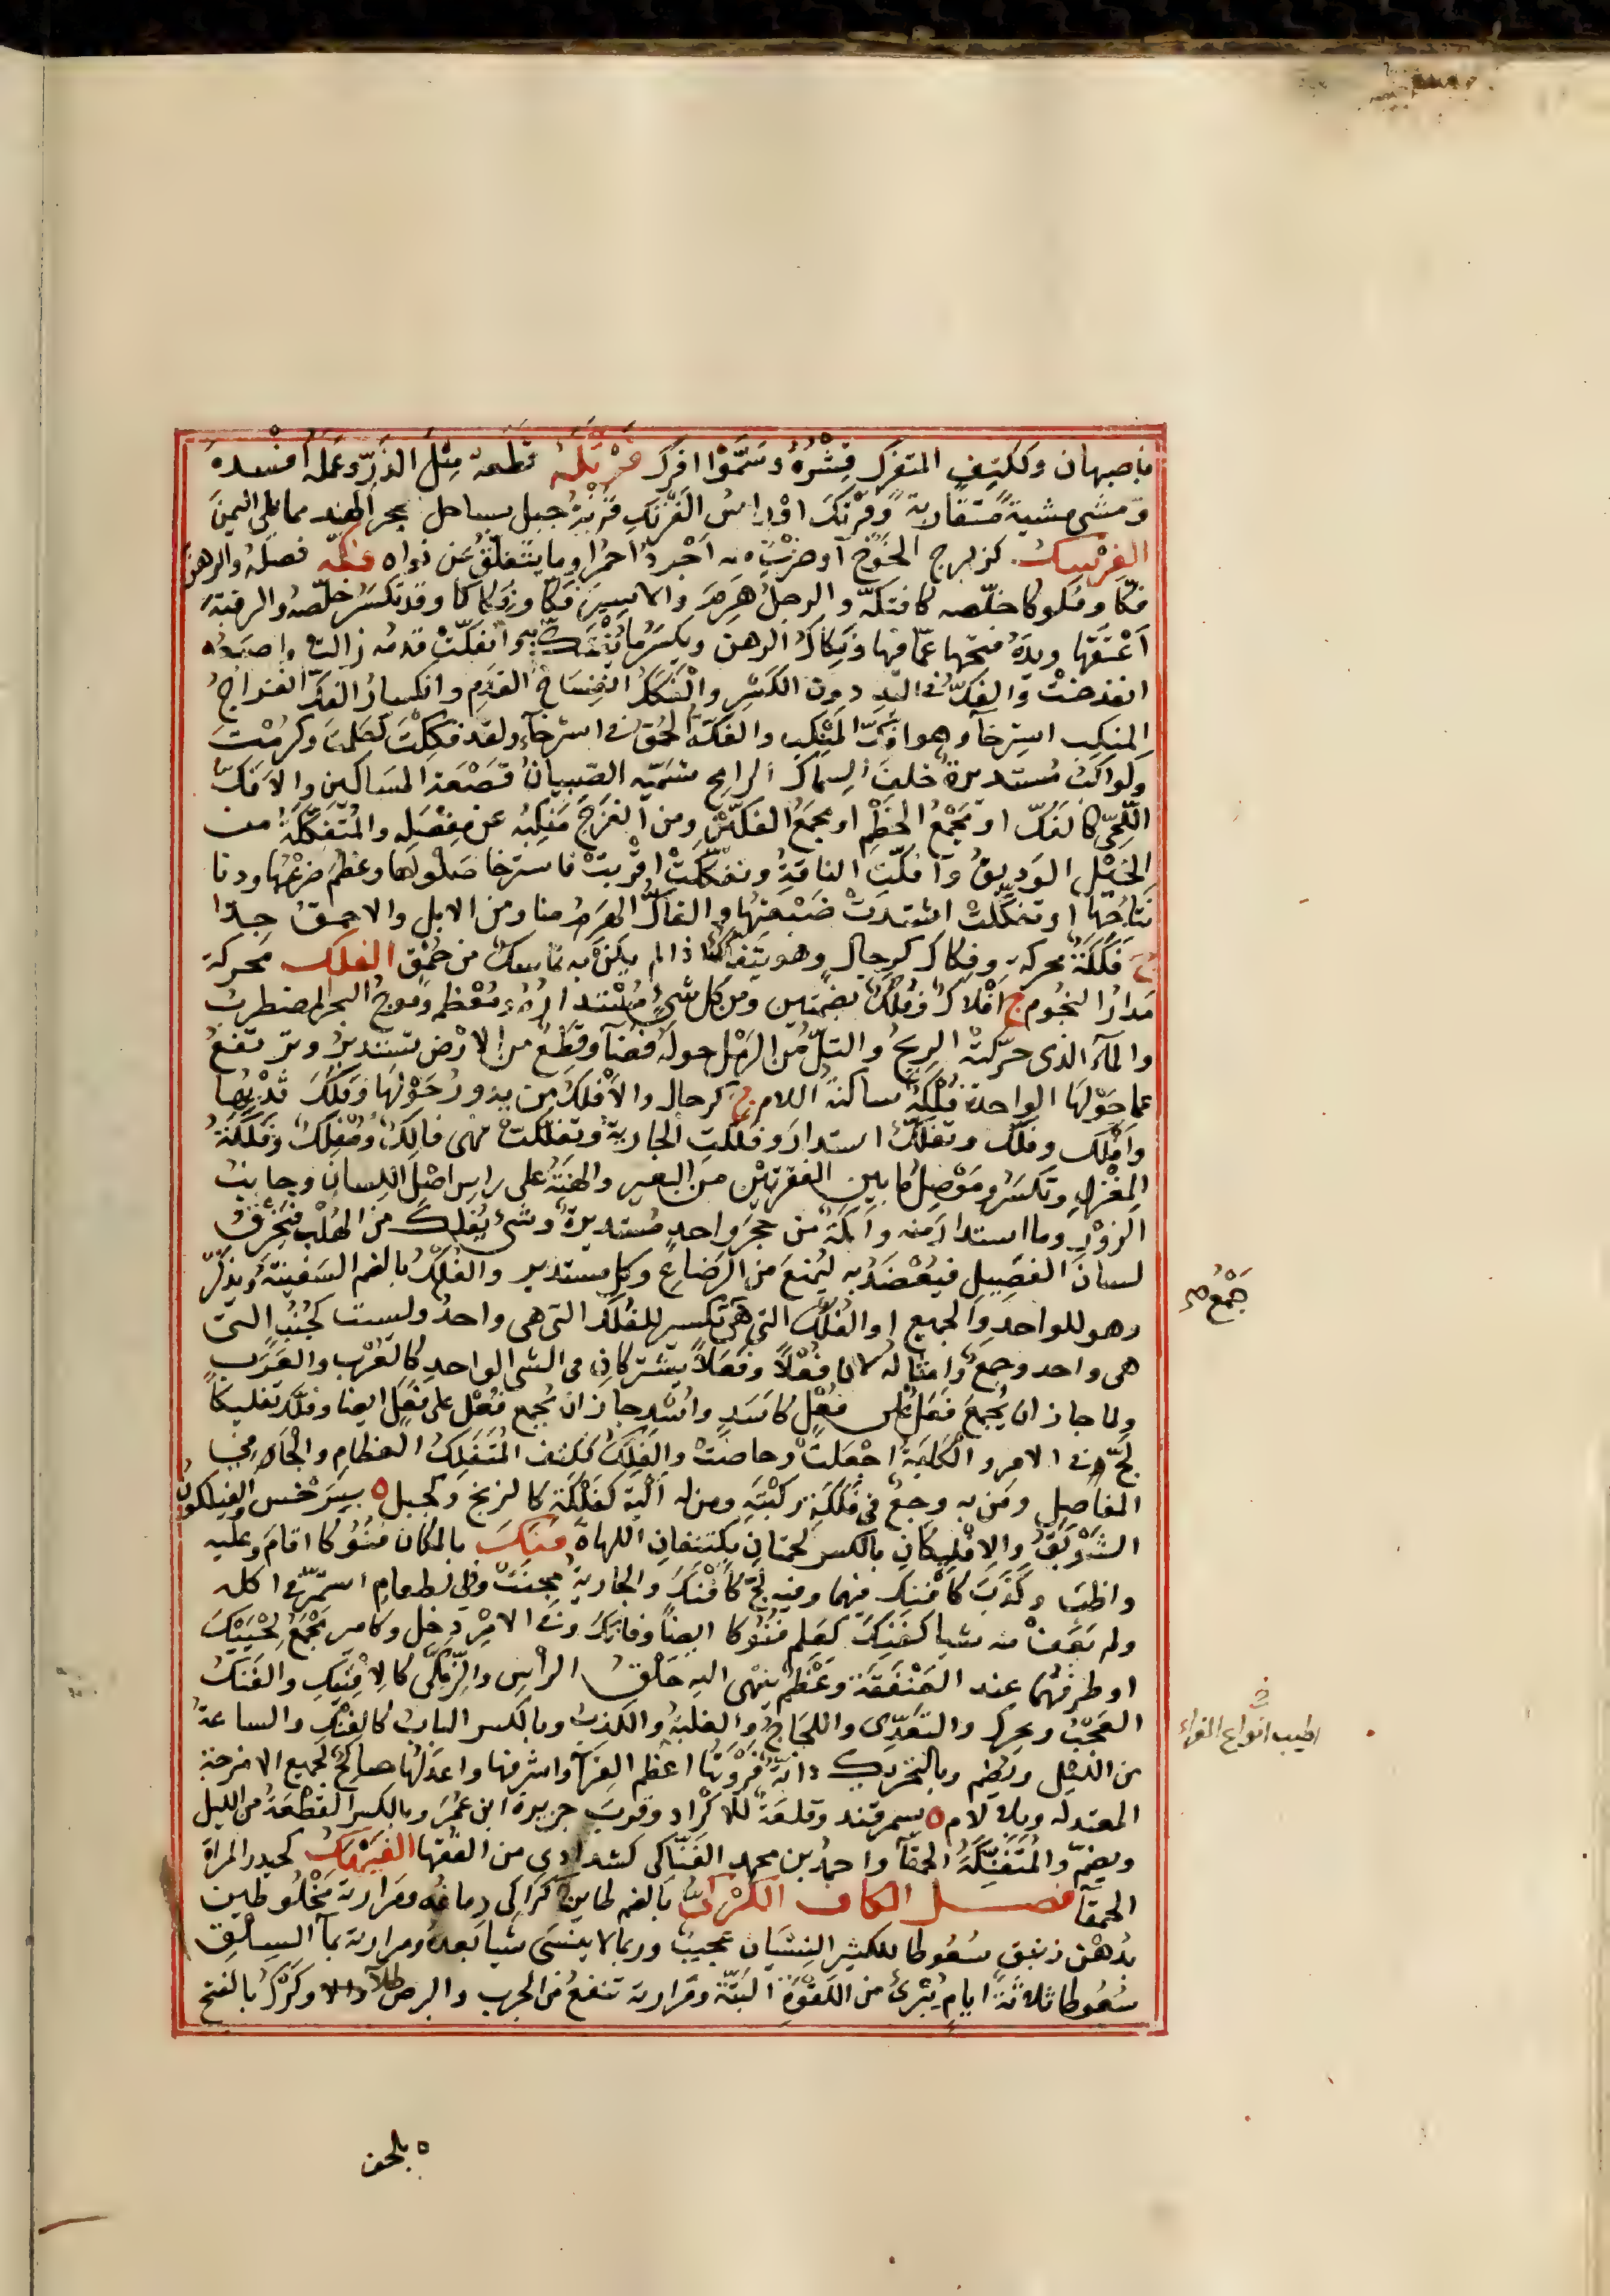 باصبهان وككتف المتفرك قشره وسموا افرك فرتكه قطعه مثل الذر وعمله افسده
ومشى مشية متقاربة وفرتك او راس الفرتك قرنة جبل بساحل بحر الهند مما يلي اليمن
الفرسك كزبرج الخوخ او ضرب منه اجرد احمر او ما يتفلق عن نواه فكه فصله والرهن
فكا وفكوكا خلصه كافتكه والرجل هرم والاسير فكا وفكاكا وقد تكسر خلصه والرقبة
اعتقها ويده فتحها عما فيها وفكاك الرهن ويكسر ما يفتك به وانفكت قدمه زالت واصبعه
انفرجت والفك في اليد دون الكسر والفكك انفساخ القدم وانكسار الفك وانفراج
المنكب استرخاء وهو افك المنكب والفكة الحمق في استرخاء ولقد فككت كعلمت وكرمت
وكواكب مستديرة خلف السماك الرامح تسميه الصبيان قصعة المساكين والافك
اللحي كالفك او مجمع الخطم او مجمع الفكين ومن انفرج منكبه عن مفصله والمتفككة من
الخيل الوديق وافكت الناقة وتفككت اقربت فاسترخا صلواها وعظم ضرعها ودنا
نتاجها او تفككت اشتدت ضبعتها والفاك الهرم منا ومن الابل والاحمق جدا
ج فككة محركة وفكاك كرجال وهو يتفكك اذا لم يكن به تماسك من حمق الفلك محركة
مدار النجوم ج افلاك وفلك بضمتين ومن كل شيء مستداره ومعظمه وموج البحر المضطرب
والماء الذي حركته الريح والتل من الرمل حوله فضاء وقطع من الارض تستدير وترتفع
عما حولها الواحدة فلكة ساكنة اللام ج كرجال والافلك من يدور حولها وفلك ثديها
وافلك وفلك وتفلك استدار وفلكت الجارية وتفلكت فهي فالك ومفلك وفلكة
المغزل وتكسر وموصل ما بين الفقرتين من البعير والهنة على راس اصل اللسان وجانب
الزور وما استدار منه واكمة من حجر واحد مستديرة وشيء يفلك من الهلب فيخرق
لسان الفصيل فيعضد به ليمنع من الرضاع وكل مستدير والفلك بالضم السفينة ويذكر
وهو للواحد والجميع او الفلك التي هي تكسير للفلك التي هي واحد وليست كجنب التي
هي واحد وجمع وامثاله لان فعلا وفعلا يشتركان في الشي الواحد كالعرب والعرب
ولما جاز ان يجمع فعل على فعل كاسد واسد جاز ان يجمع فعل على فعل ايضا وفلك تفليكا
لج في الامر والكلبة اجعلت وحاضت والفلك ككتف المتفلك العظام والجافي
المفاصل ومن به وجع في فلكة ركبته ومن له الية كفلكة كالزنج وكجبل ه بسرخس والفيلكون
الشوبق والافليكان بالكسر لحمتان يكتنفان اللهاة فنك بالمكان فنوكا اقام وعليه
واظب وكذب كافنك فيهما وفيه لج كافنك والجارية مجنت وفي الطعام استمر في اكله
ولم يعف منه شيا كفنك كعلم فنوكا ايضا وفانك وفي الامر دخل وكامير مجمع لحييك
او طرفهما عند العنفقة وعظم ينتهي اليه حلق الراس والزمكى كالافنيك والفنك
العجب ويحرك والتعدي واللجاج والغلبة والكذب وبالكسر الباب كالفنك والساعة
من الليل ويضم وبالتحريك دابة فروتها اعظم الفرا واشرفها واعدلها صالح لجميع الامزجة
المعتدلة وبلا لام ه بسمرقند وقلعة للاكراد وقرب جزيرة ابن عمر وبالكسر القطعة من الليل
ويضم والمتفنكة الحمقاء واحمد بن محمد الفناكي كشدادي من الفقها الفيهك كحيدر المراة
الحمقاء فصل الكاف الكركي بالضم طاير ج كراكي دماغه ومرارته مخلوطين
بدهن زنبق سعوطا للكثير النسيان عجيب وربما لا ينسى شيا بعده ومرارته بماء السلق
سعوطا ثلاثة ايام تبرئ من اللقوة البتة ومرارته تنفع من الجرب والبرص طلاء وكرك بالفتح
جمع صح
اطيب انواع الفراء
ه بلحف